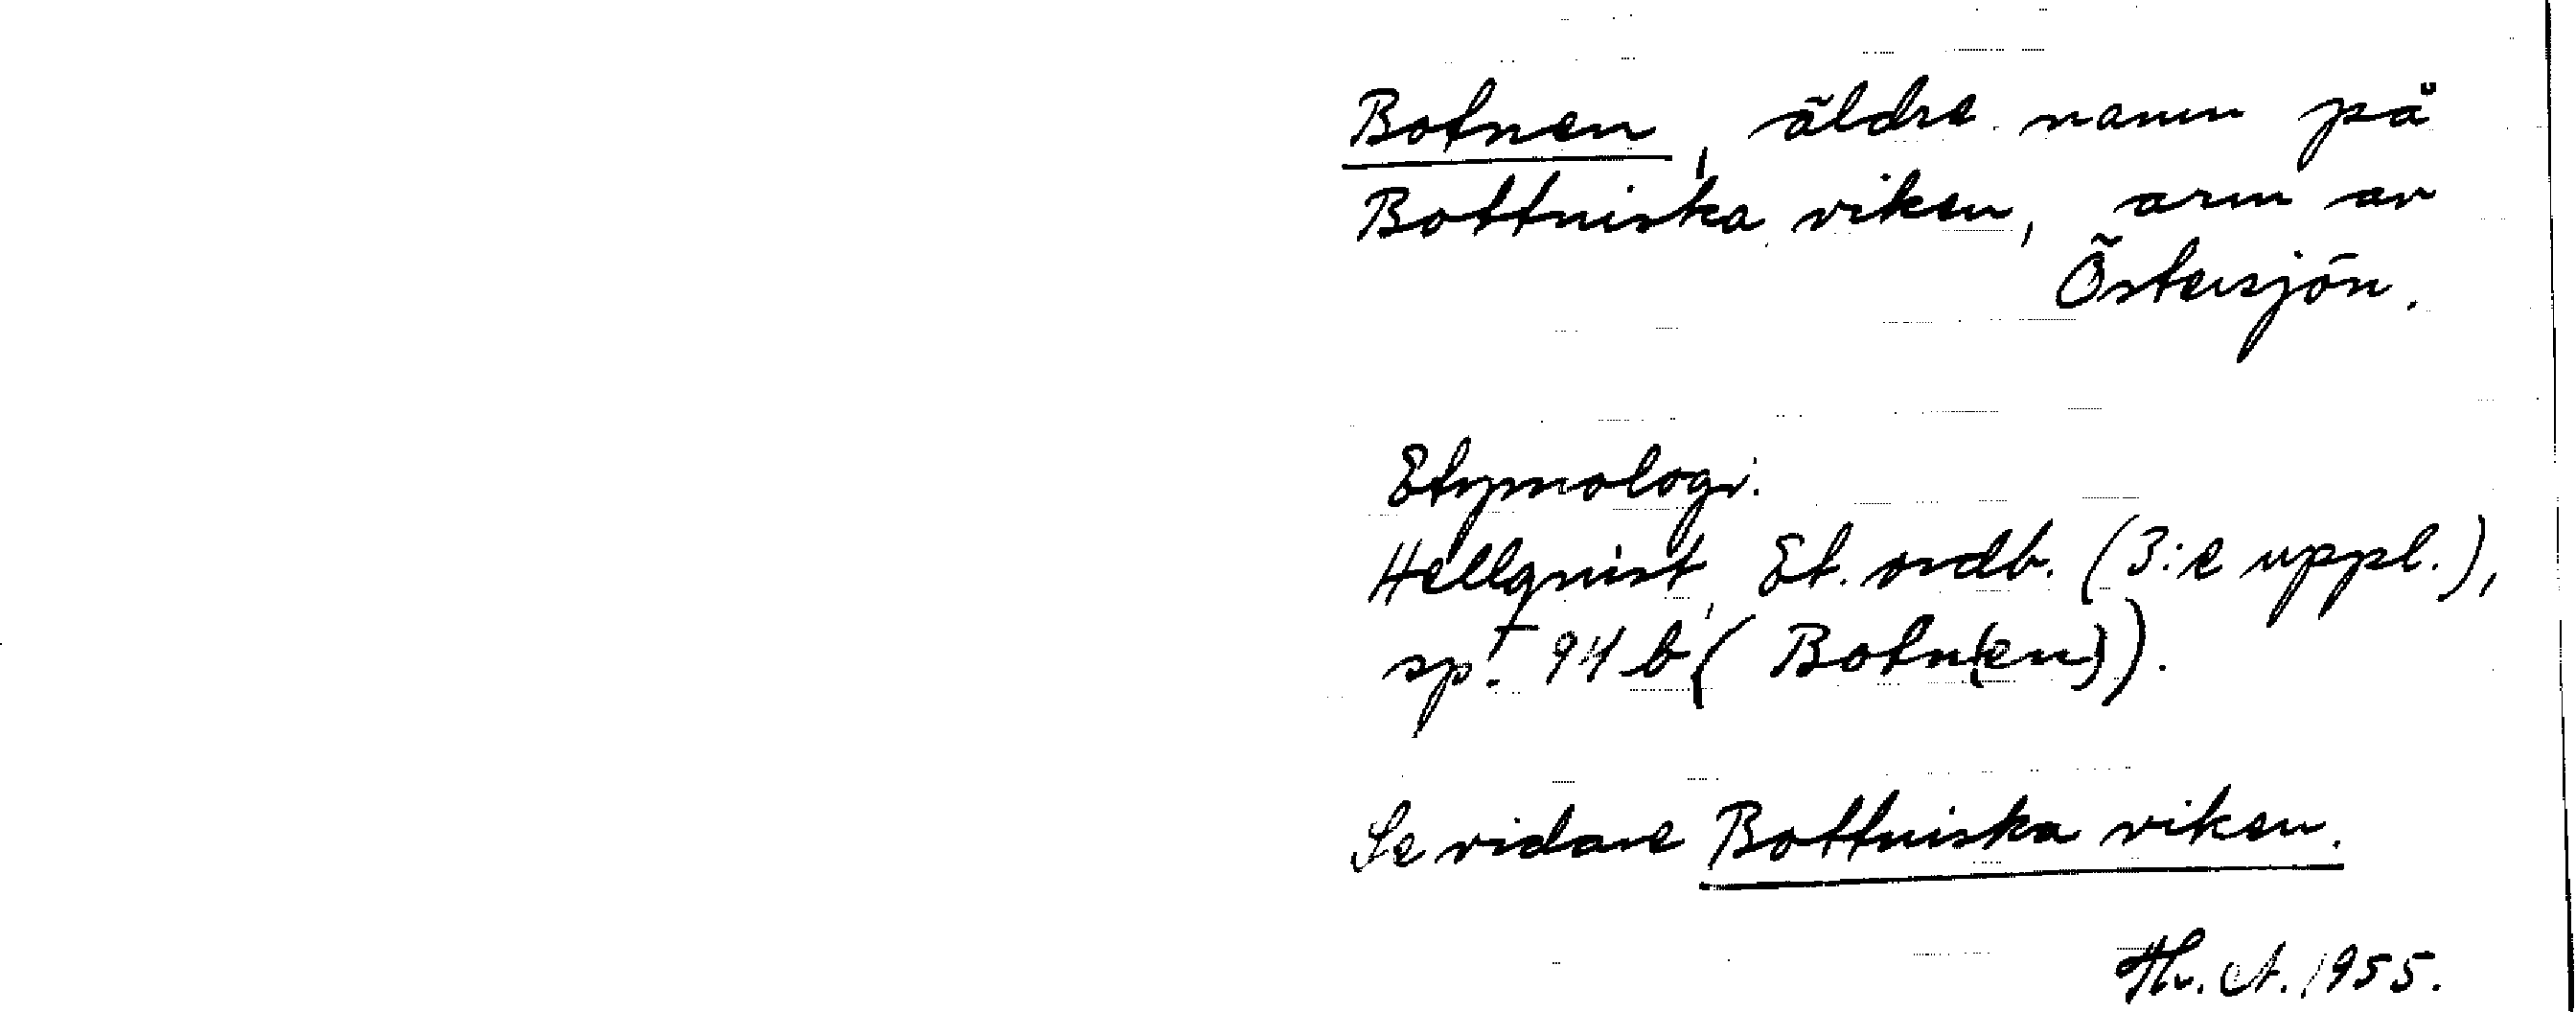 Botnen, äldre namn på
Bottniska viken, arm av
Östersjön.
Etymologi.
Hellquist, Et. ordb. (3:e uppl.),
sp. 94 b (Botn(en)).
Se vidare Bottniska viken.
Th. A. 1955.